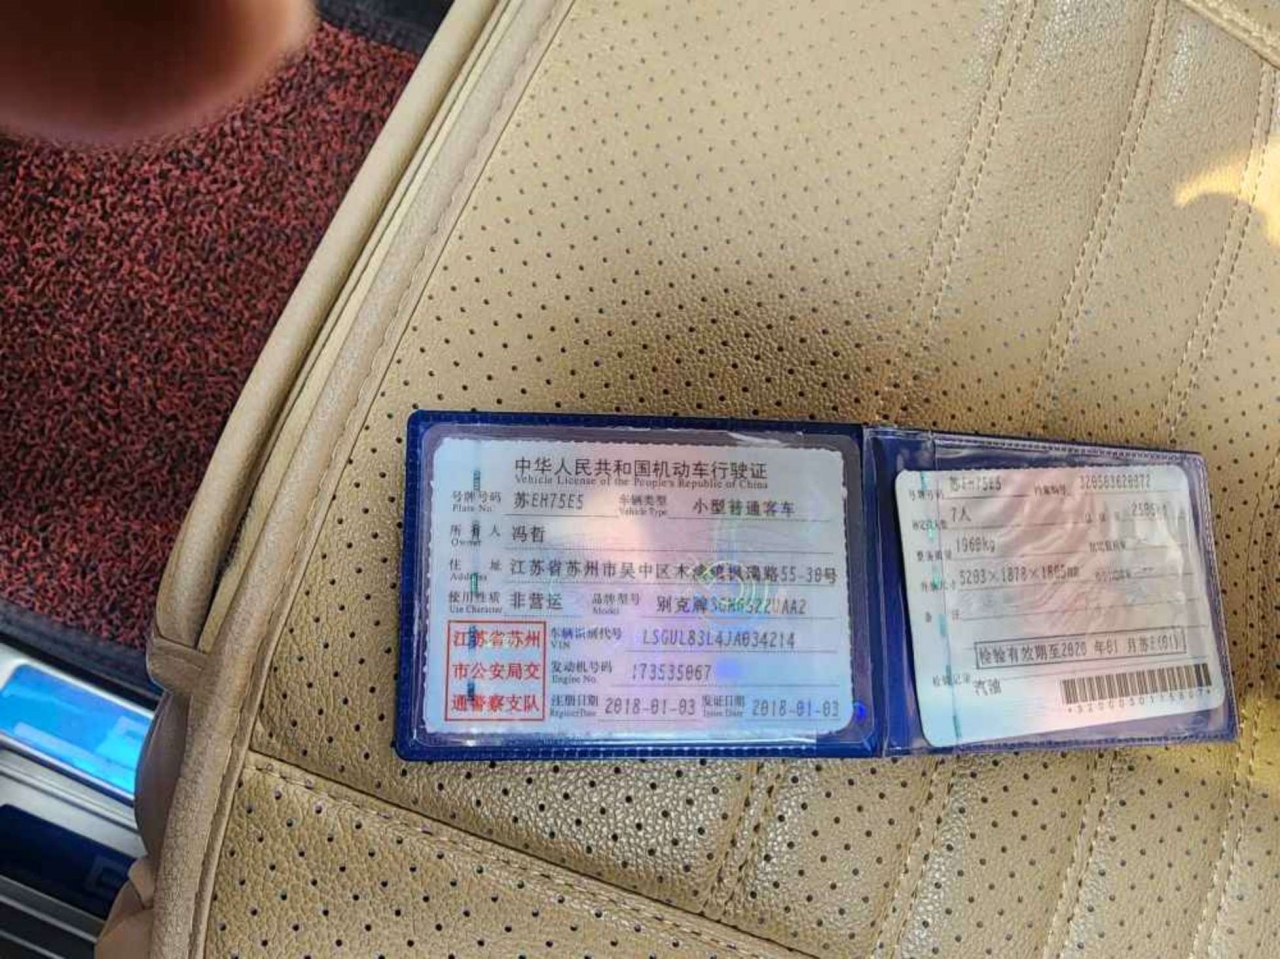 中华人民共和国机动车行驶证
Vehicle License of the People's Republic of China
号牌号码 苏EH75E5 车辆类型 小型普通客车
Plate No. Vehicle Type
所有人 冯哲
Owner
住址 江苏省苏州市吴中区木渎镇枫瑞路55-30号
Address
使用性质 非营运 品牌型号 别克牌SGM6522UAA2
Use Character Model
江苏省苏州
市公安局交
通警察支队
车辆识别代号 LSGUL83L4JA034214
VIN
发动机号码 173535067
Engine No.
注册日期 2018-01-03 发证日期 2018-01-03
Register Date Issue Date
号牌号码 苏EH75E5 档案编号
7人
整备质量 1960kg
外廓尺寸 5203×1878×1805mm
备注
检验有效期至2020年01月苏E(01)
检验记录 汽油